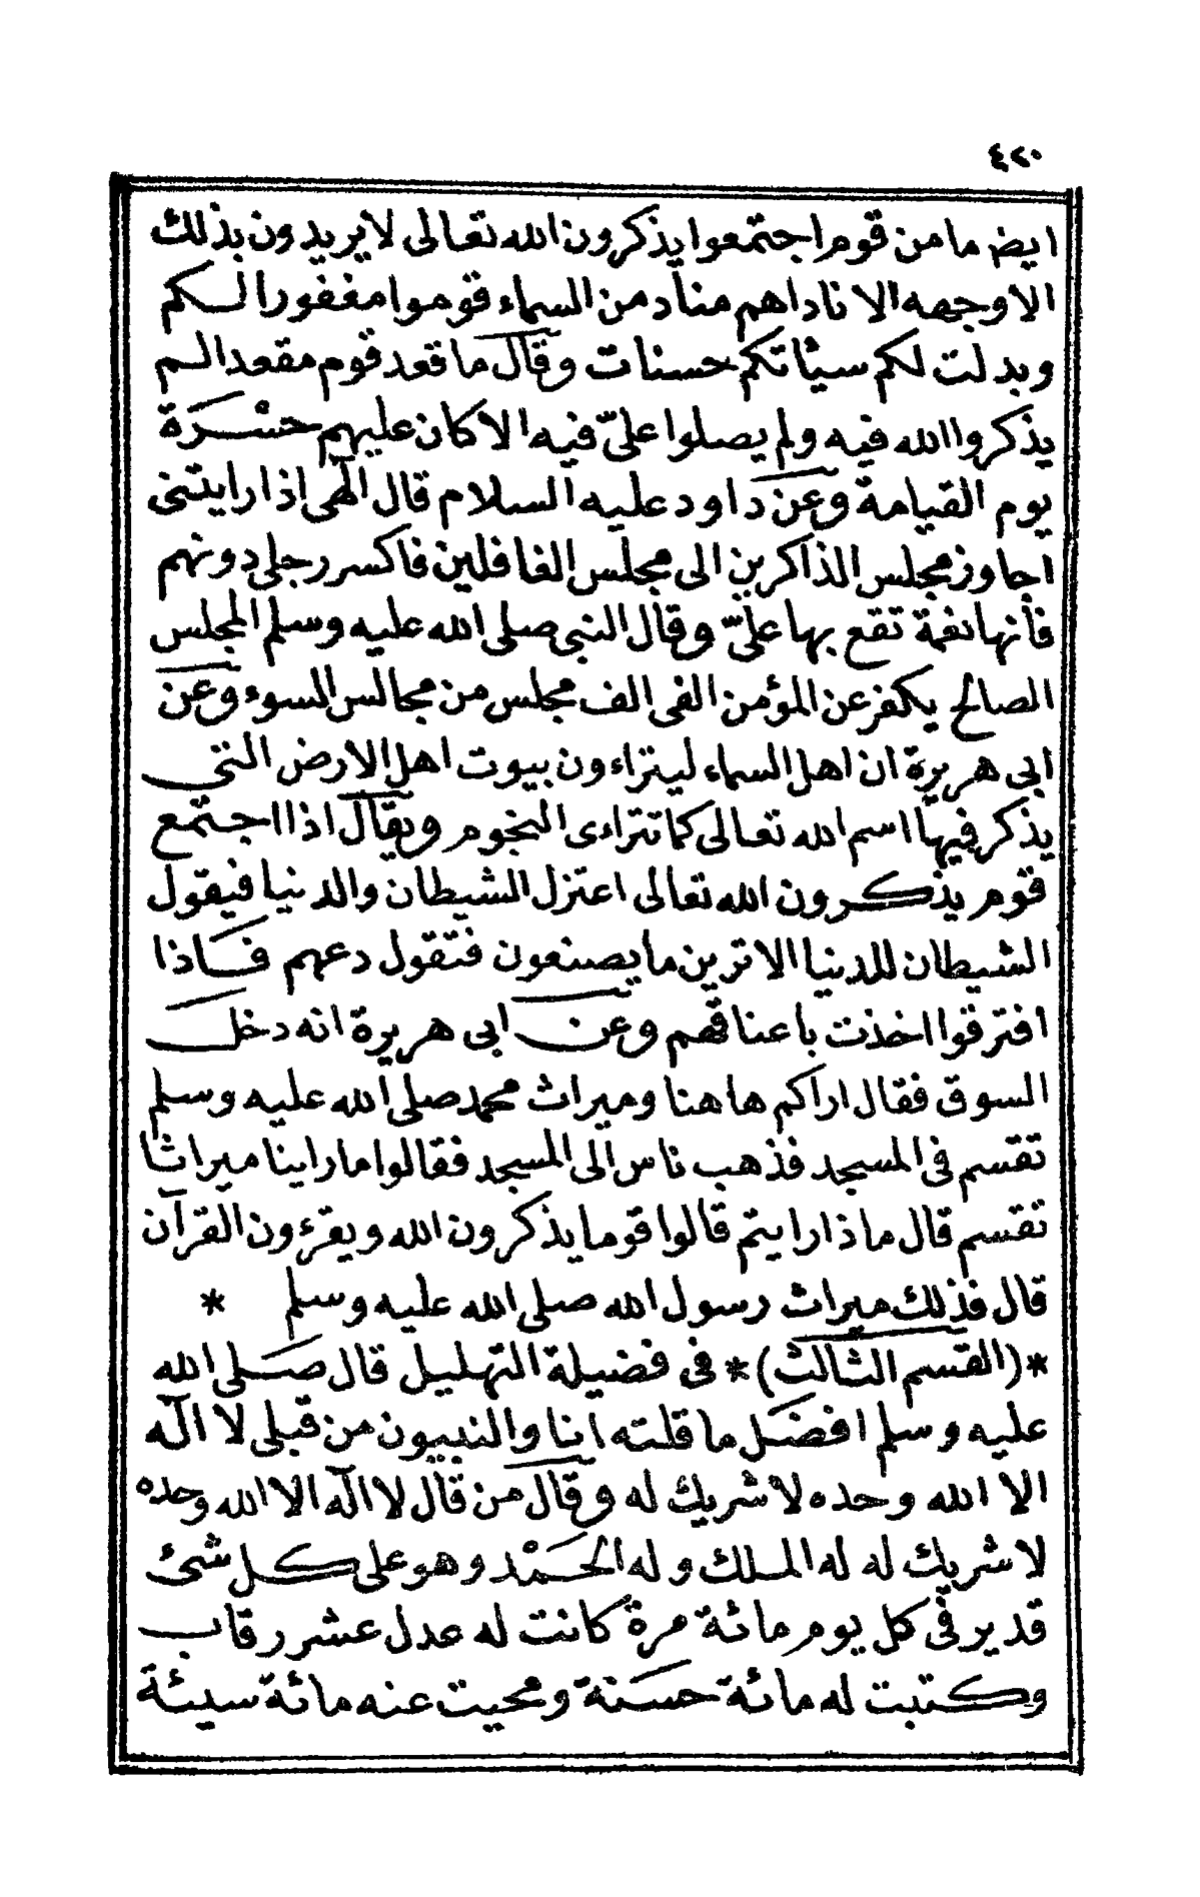 ٤٢٠
ايض ما من قوم اجتمعوا يذكرون الله تعالى لا يريدون بذلك
الا وجهه الا ناداهم مناد من السماء قوموا مغفورا لكم
وبدلت لكم سيئاتكم حسنات وقال ما قعد قوم مقعدا لم
يذكروا الله فيه ولم يصلوا علىّ فيه الا كان عليهم حسْرَة
يوم القيامة وعن داود عليه السلام قال الٓهى اذا رايتنى
اجاوز مجلس الذاكرين الى مجلس الغافلين فاكسر رجلى دونهم
فانها نغمة تقع بها علىّ وقال النبى صلى الله عليه وسلم المجلس
الصالح يكفر عن المؤمن الفى الف مجلس من مجالس السوء وعن
ابى هريرة ان اهل السماء ليتراءون بيوت اهل الارض التى
يذكر فيها اسم الله تعالى كما تتراءى النجوم ويقال اذا اجتمع
قوم يذكرون الله تعالى اعتزل الشيطان والدنيا فيقول
الشيطان للدنيا الا ترين ما يصنعون فتقول دعهم فَاذا
افترقوا اخذت باعناقهم وعن ابى هريرة انه دخل
السوق فقال اراكم هاهنا وميراث محمد صلى الله عليه وسلم
تقسم فى المسجد فذهب ناس الى المسجد فقالوا ما راينا ميراثا
تقسم قال ما ذا رايتم قالوا قوما يذكرون الله ويقرءون القرآن
قال فذلك ميراث رسول الله صلى الله عليه وسلم *
*(القسم الثالث)* فى فضيلة التهليل قال صَلى الله
عليه وسلم افضَل ما قلته انا والنبيون من قبلى لا الٓه
الا الله وحده لا شريك له وقال من قال لا الٓه الا الله وحده
لا شريك له له الملك وله الحَمْد وهو على كل شئ
قدير فى كل يوم مائة مرة كانت له عدل عشر رقاب
وكتبت له مائة حسَنة ومحيت عنه مائة سيئة